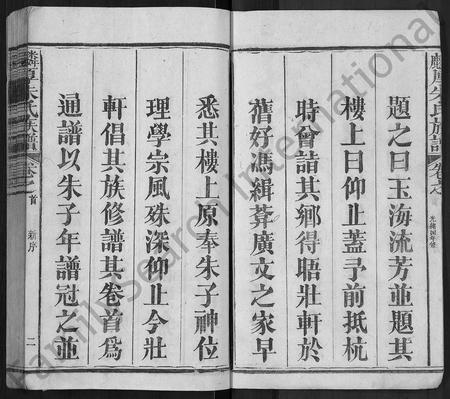 題之曰玉海流芳並題其
樓上曰仰止蓋予前抵杭
時曾詰其鄉得晤壯軒於
舊好馮緝葊廣文之家早
悉其樓上原奉朱子神位
理學宗風殊深仰止今壯
軒倡其族修譜其卷首爲
通譜以朱子年譜冠之並
麟厚朱氏族譜 卷之首 新序 二
FamilySearch International